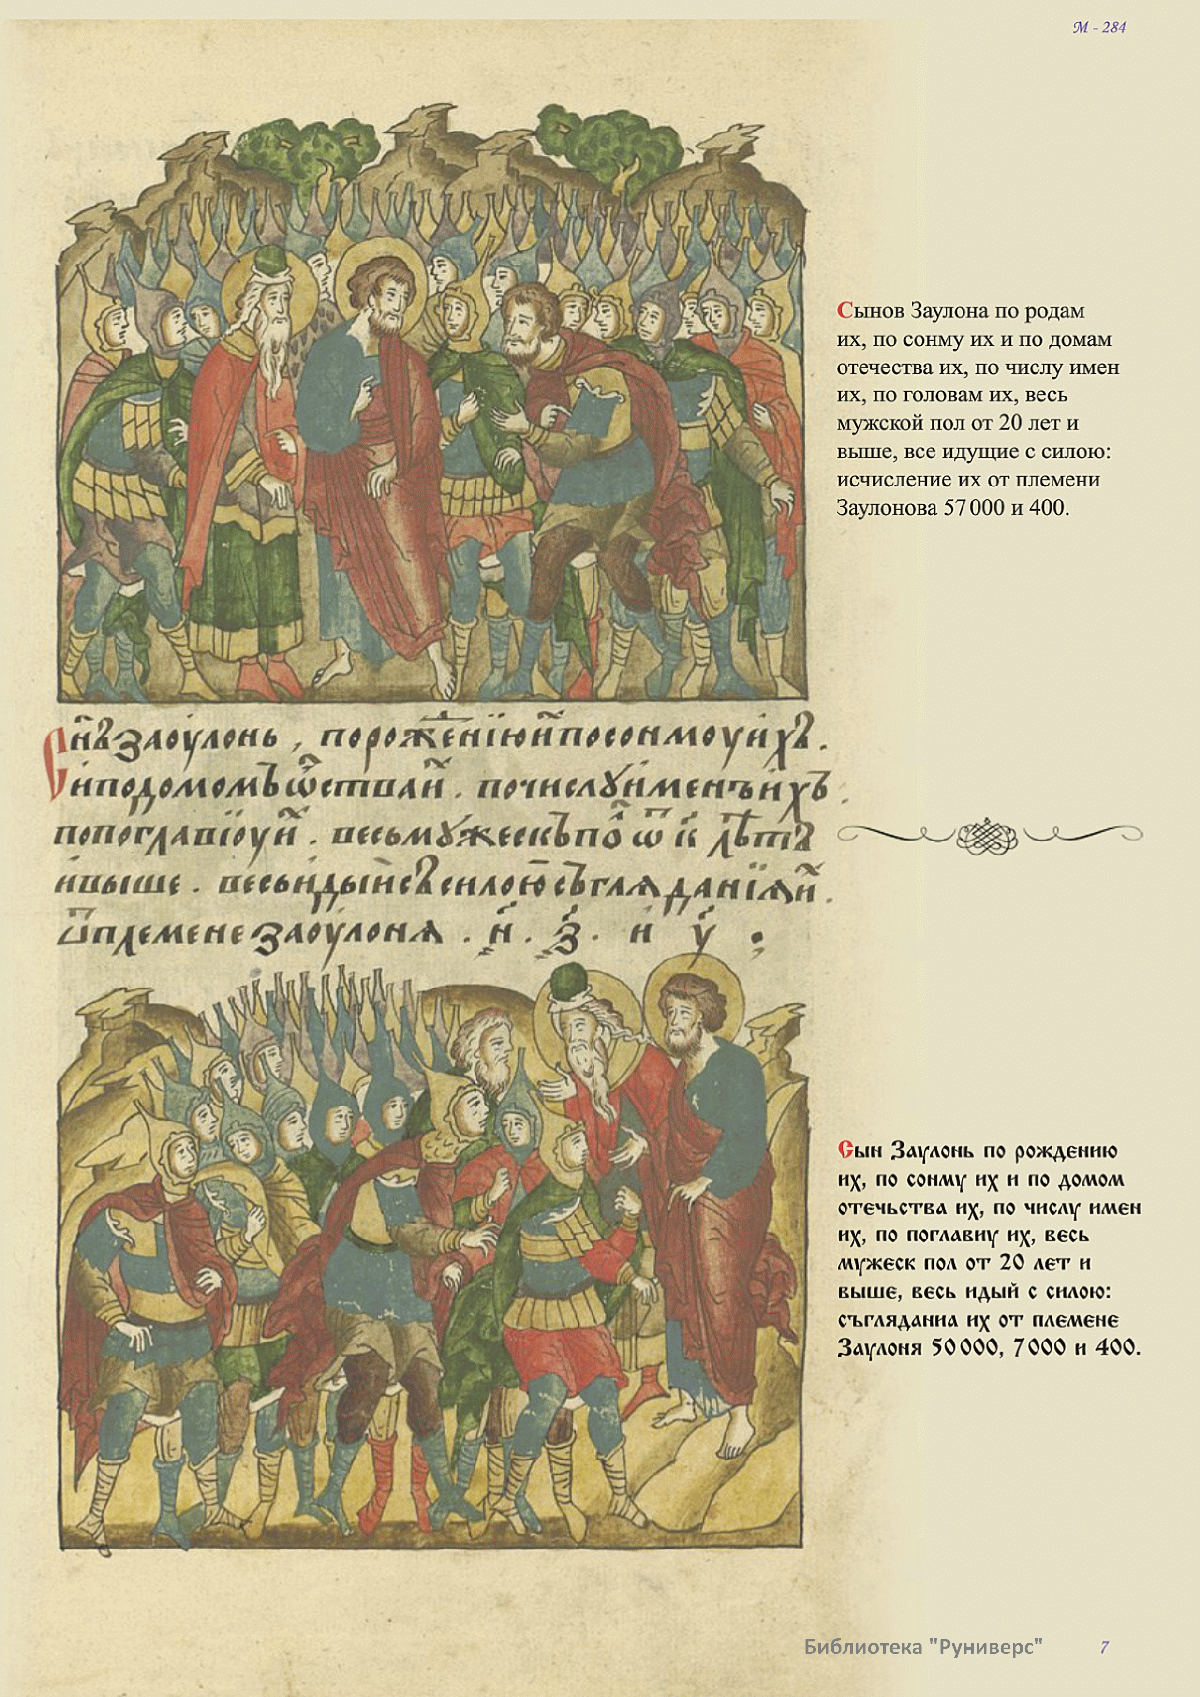 М - 284
Сынов Заулона по родам
их, по сонму их и по домам
отечества их, по числу имен
их, по головам их, весь
мужской пол от 20 лет и
выше, все идущие с силою:
исчисление их от племени
Заулонова 57 000 и 400.
Сн҃ъ заоулонь , порожⷣенїюиⷯ посонмоуихъ .
иподомомъ ѿстваиⷯ . почислуименъихъ .
попоглавїоуиⷯ . весьмужескъпоⷧ ѿ к҃ лѣтъ
ивыше . весьидыисъсилою съгляданїяиⷯ .
ѿплемене заоулоня . н҃ . ҂з҃ . и у҃ .
Сын Заулонь по рождению
их, по сонму их и по домом
отечьства их, по числу имен
их, по поглавиу их, весь
мужеск пол от 20 лет и
выше, весь идый с силою:
съгляданиа их от племене
Заулоня 50 000, 7 000 и 400.
Библиотека "Руниверс"
7